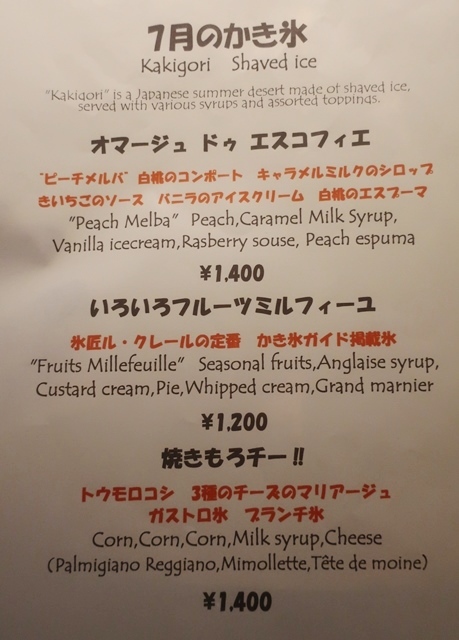 7月のかき氷
Kakigori Shaved ice
"Kakigori" is a Japanese summer desert made of shaved ice,
served with various syrups and assorted toppings.
オマージュ ドゥ エスコフィエ
"ピーチメルバ" 白桃のコンポート キャラメルミルクのシロップ
きいちごのソース バニラのアイスクリーム 白桃のエスプーマ
"Peach Melba" Peach,Caramel Milk Syrup,
Vanilla icecream,Rasberry souse, Peach espuma
¥1,400
いろいろフルーツミルフィーユ
氷匠ル・クレールの定番 かき氷ガイド掲載氷
"Fruits Millefeuille" Seasonal fruits,Anglaise syrup,
Custard cream,Pie,Whipped cream,Grand marnier
¥1,200
焼きもろチー!!
トウモロコシ 3種のチーズのマリアージュ
ガストロ氷 ブランチ氷
Corn,Corn,Corn,Milk syrup,Cheese
(Palmigiano Reggiano,Mimollette,Tête de moine)
¥1,400